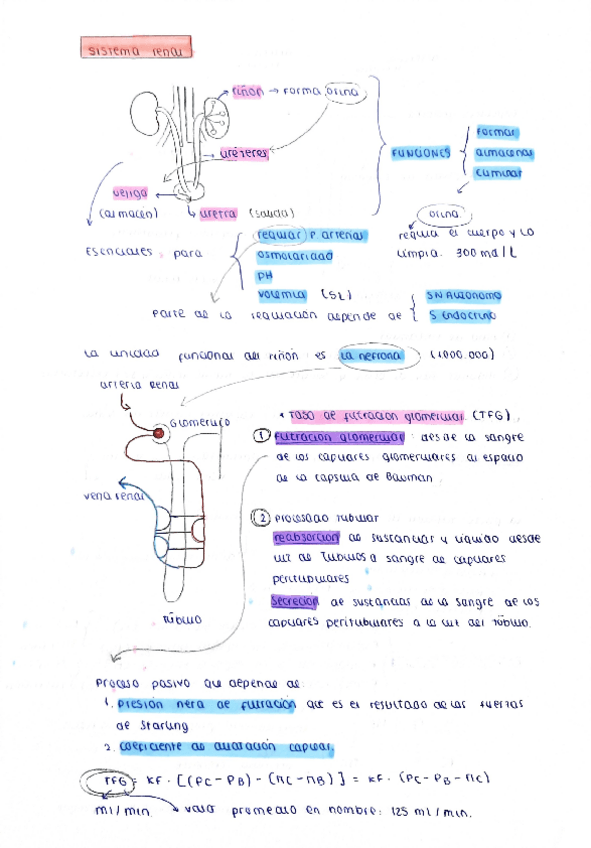 sistema renal
riñón → forma orina
uréteres
vejiga
(almacén)
uretra (salida)
FUNCIONES
formar
almacenar
eliminar
orina
regula el cuerpo y lo
limpia. 300 md/L
Esenciales para
regular P. arterial
osmolaridad
PH
volemia (5L)
Parte de la regulación depende de
SN Autónomo
S. Endocrino
La unidad funcional del riñón es la nefrona (1.000.000)
arteria renal
Glomérulo
vena renal
Túbulo
* Tasa de filtración glomerular (TFG)
1 Filtración glomerular: desde la sangre
de los capilares glomerulares al espacio
de la cápsula de Bowman
2 Procesado tubular
reabsorción de sustancias y líquido desde
luz de Túbulos a sangre de capilares
peritubulares
Secreción de sustancias de la sangre de los
capilares peritubulares a la luz del túbulo.
Proceso pasivo que depende de:
1. Presión neta de filtración que es el resultado de las fuerzas
de Starling
2. Coeficiente de capilar.
TFG = KF · [(PC - PB) - (πC - πB)] = KF · (PC - PB - πC)
ml/min. valor promedio en hombre: 125 ml/min.